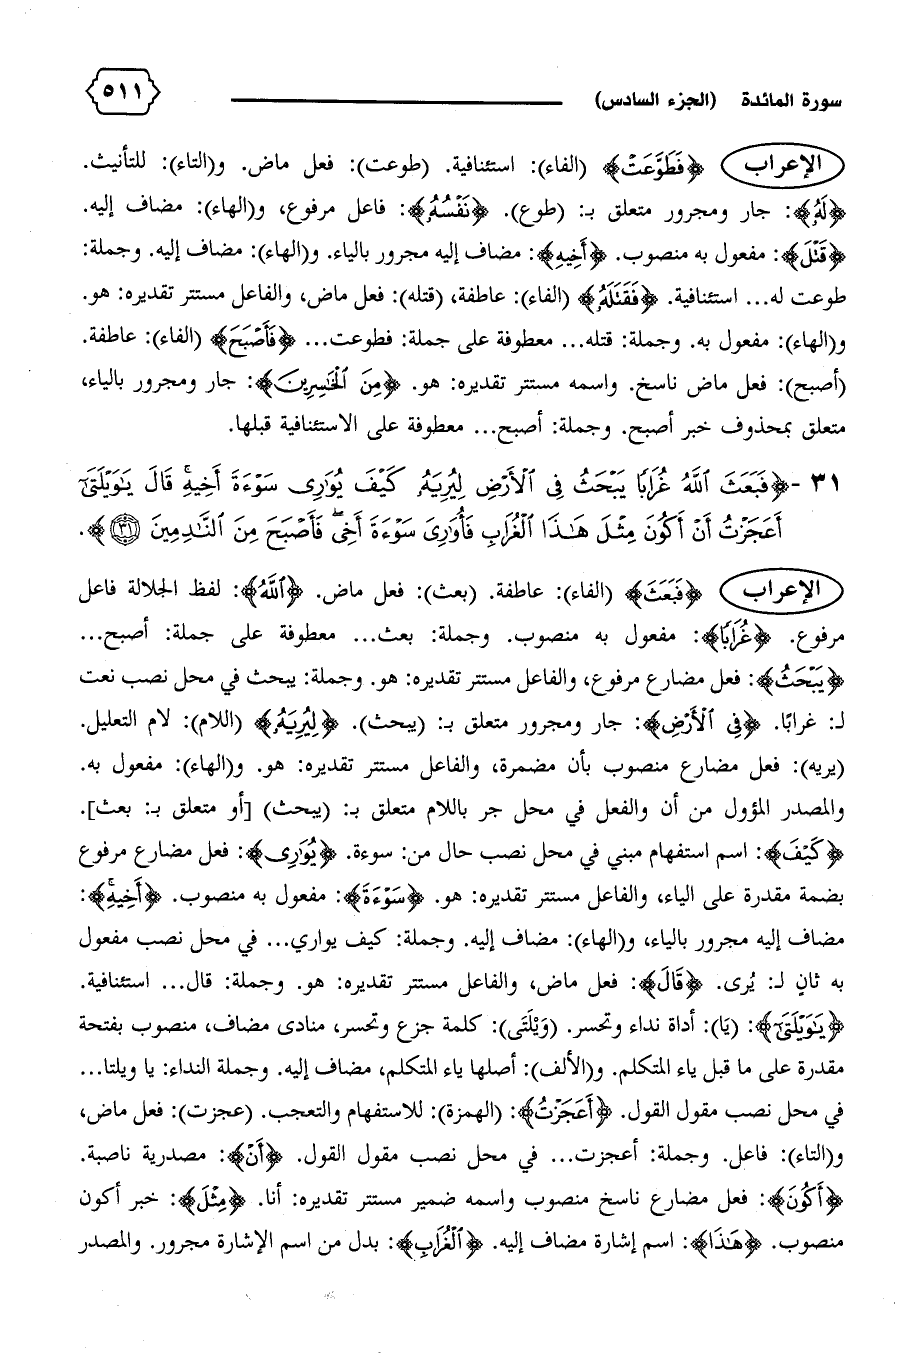 سورة المائدة (الجزء السادس) ٥١١
الإعراب ﴿فَطَوَّعَتْ﴾ (الفاء): استئنافية. (طوعت): فعل ماض. و(التاء): للتأنيث.
﴿لَهُ﴾: جار ومجرور متعلق بـ: (طوع). ﴿نَفْسُهُ﴾: فاعل مرفوع، و(الهاء): مضاف إليه.
﴿قَتْلَ﴾: مفعول به منصوب. ﴿أَخِيهِ﴾: مضاف إليه مجرور بالياء. و(الهاء): مضاف إليه. وجملة:
طوعت له... استئنافية. ﴿فَقَتَلَهُ﴾ (الفاء): عاطفة، (قتله): فعل ماض، والفاعل مستتر تقديره: هو.
و(الهاء): مفعول به. وجملة: قتله... معطوفة على جملة: فطوعت... ﴿فَأَصْبَحَ﴾ (الفاء): عاطفة.
(أصبح): فعل ماض ناسخ. واسمه مستتر تقديره: هو. ﴿مِنَ ٱلْخَٰسِرِينَ﴾: جار ومجرور بالياء،
متعلق بمحذوف خبر أصبح. وجملة: أصبح... معطوفة على الاستئنافية قبلها.
٣١ -﴿فَبَعَثَ ٱللَّهُ غُرَابًا يَبْحَثُ فِى ٱلْأَرْضِ لِيُرِيَهُۥ كَيْفَ يُوَٰرِى سَوْءَةَ أَخِيهِ ۚ قَالَ يَٰوَيْلَتَىٰٓ
أَعَجَزْتُ أَنْ أَكُونَ مِثْلَ هَٰذَا ٱلْغُرَابِ فَأُوَٰرِىَ سَوْءَةَ أَخِى ۖ فَأَصْبَحَ مِنَ ٱلنَّٰدِمِينَ ٣١﴾.
الإعراب ﴿فَبَعَثَ﴾ (الفاء): عاطفة. (بعث): فعل ماض. ﴿ٱللَّهُ﴾: لفظ الجلالة فاعل
مرفوع. ﴿غُرَابًا﴾: مفعول به منصوب. وجملة: بعث... معطوفة على جملة: أصبح...
﴿يَبْحَثُ﴾: فعل مضارع مرفوع، والفاعل مستتر تقديره: هو. وجملة: يبحث في محل نصب نعت
لـ: غرابًا. ﴿فِى ٱلْأَرْضِ﴾: جار ومجرور متعلق بـ: (يبحث). ﴿لِيُرِيَهُۥ﴾ (اللام): لام التعليل.
(يريه): فعل مضارع منصوب بأن مضمرة، والفاعل مستتر تقديره: هو. و(الهاء): مفعول به.
والمصدر المؤول من أن والفعل في محل جر باللام متعلق بـ: (يبحث) [أو متعلق بـ: بعث].
﴿كَيْفَ﴾: اسم استفهام مبني في محل نصب حال من: سوءة. ﴿يُوَٰرِى﴾: فعل مضارع مرفوع
بضمة مقدرة على الياء، والفاعل مستتر تقديره: هو. ﴿سَوْءَةَ﴾: مفعول به منصوب. ﴿أَخِيهِ ۚ﴾:
مضاف إليه مجرور بالياء، و(الهاء): مضاف إليه. وجملة: كيف يواري... في محل نصب مفعول
به ثانٍ لـ: يُرى. ﴿قَالَ﴾: فعل ماض، والفاعل مستتر تقديره: هو. وجملة: قال... استئنافية.
﴿يَٰوَيْلَتَىٰٓ﴾: (يَا): أداة نداء وتحسر. (وَيْلَتَى): كلمة جزع وتحسر، منادى مضاف، منصوب بفتحة
مقدرة على ما قبل ياء المتكلم. و(الألف): أصلها ياء المتكلم، مضاف إليه. وجملة النداء: يا ويلتا...
في محل نصب مقول القول. ﴿أَعَجَزْتُ﴾: (الهمزة): للاستفهام والتعجب. (عجزت): فعل ماض،
و(التاء): فاعل. وجملة: أعجزت... في محل نصب مقول القول. ﴿أَنْ﴾: مصدرية ناصبة.
﴿أَكُونَ﴾: فعل مضارع ناسخ منصوب واسمه ضمير مستتر تقديره: أنا. ﴿مِثْلَ﴾: خبر أكون
منصوب. ﴿هَٰذَا﴾: اسم إشارة مضاف إليه. ﴿ٱلْغُرَابِ﴾: بدل من اسم الإشارة مجرور. والمصدر